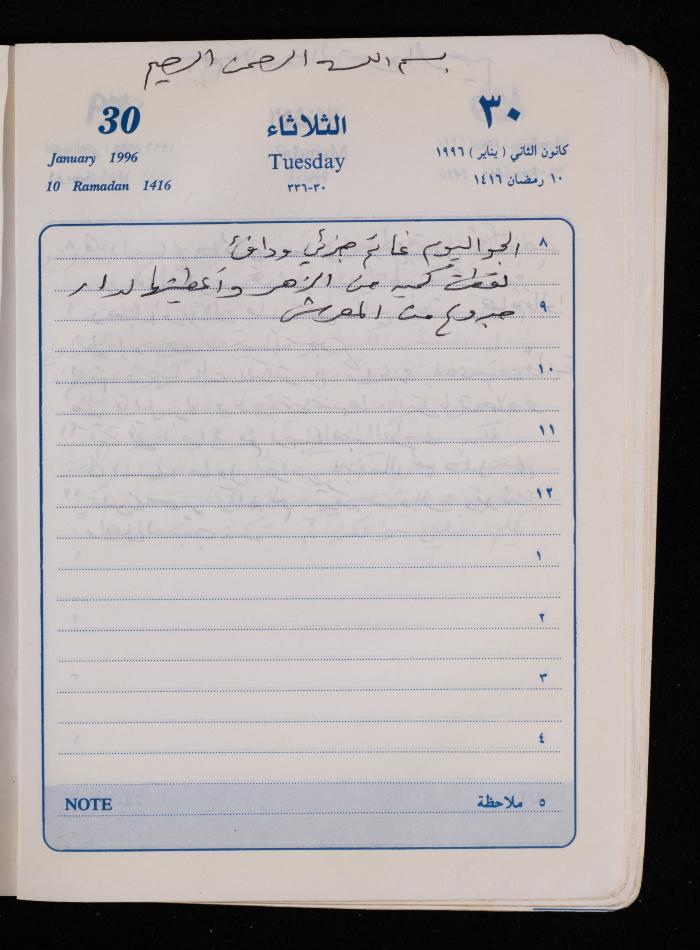 بسم الله الرحمن الرحيم
30
January 1996
10 Ramadan 1416
الثلاثاء
Tuesday
٣٣٦-٣٠
٣٠
كانون الثاني ( يناير ) ١٩٩٦
١٠ رمضان ١٤١٦
٨
الجو اليوم غائم جزئي ودافئ
لقطت كميه من الزهر وأعطيتها لدار
٩
من المعرش
١٠
١١
١٢
١
٢
٣
٤
NOTE
٥ ملاحظة